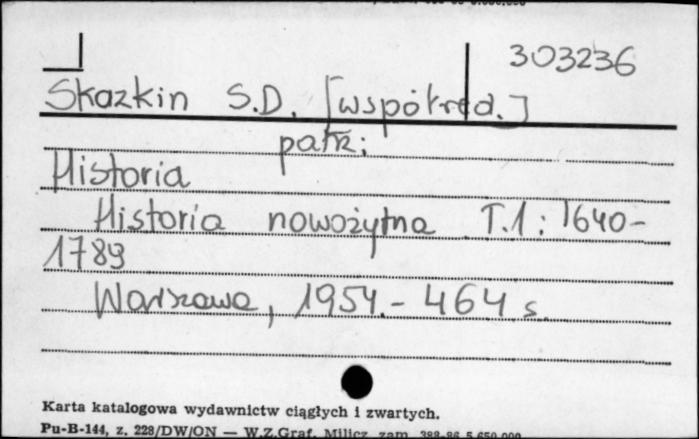 303236
Skazkin S.D. [współred.]
patrz:
Historia
Historia nowożytna T.1: 1640-
1789
Warszawa, 1954.- 464 s.
Karta katalogowa wydawnictw ciągłych i zwartych.
Pu-B-144, z. 228/DW/ON — W.Z.Graf. Milicz zam. 388-86 5.650.000